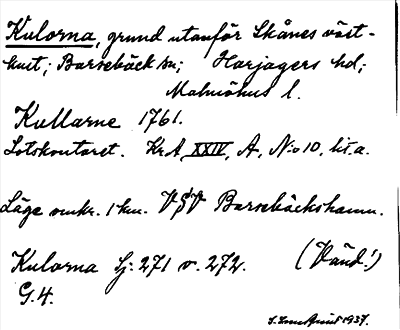 Kulorna, grund utanför Skånes väst-
kust; Barsebäck sn; Harjagers hd;
Malmöhus l.
Kullarne 1761.
Lotskontoret. Kr A XXIV, A, No 10, lit. a.
Läge omkr. 1 km. VSV Barsebäckshamn.
Kulorna Sj. 271 o. 272. (Vänd!)
G. 4.
1937.